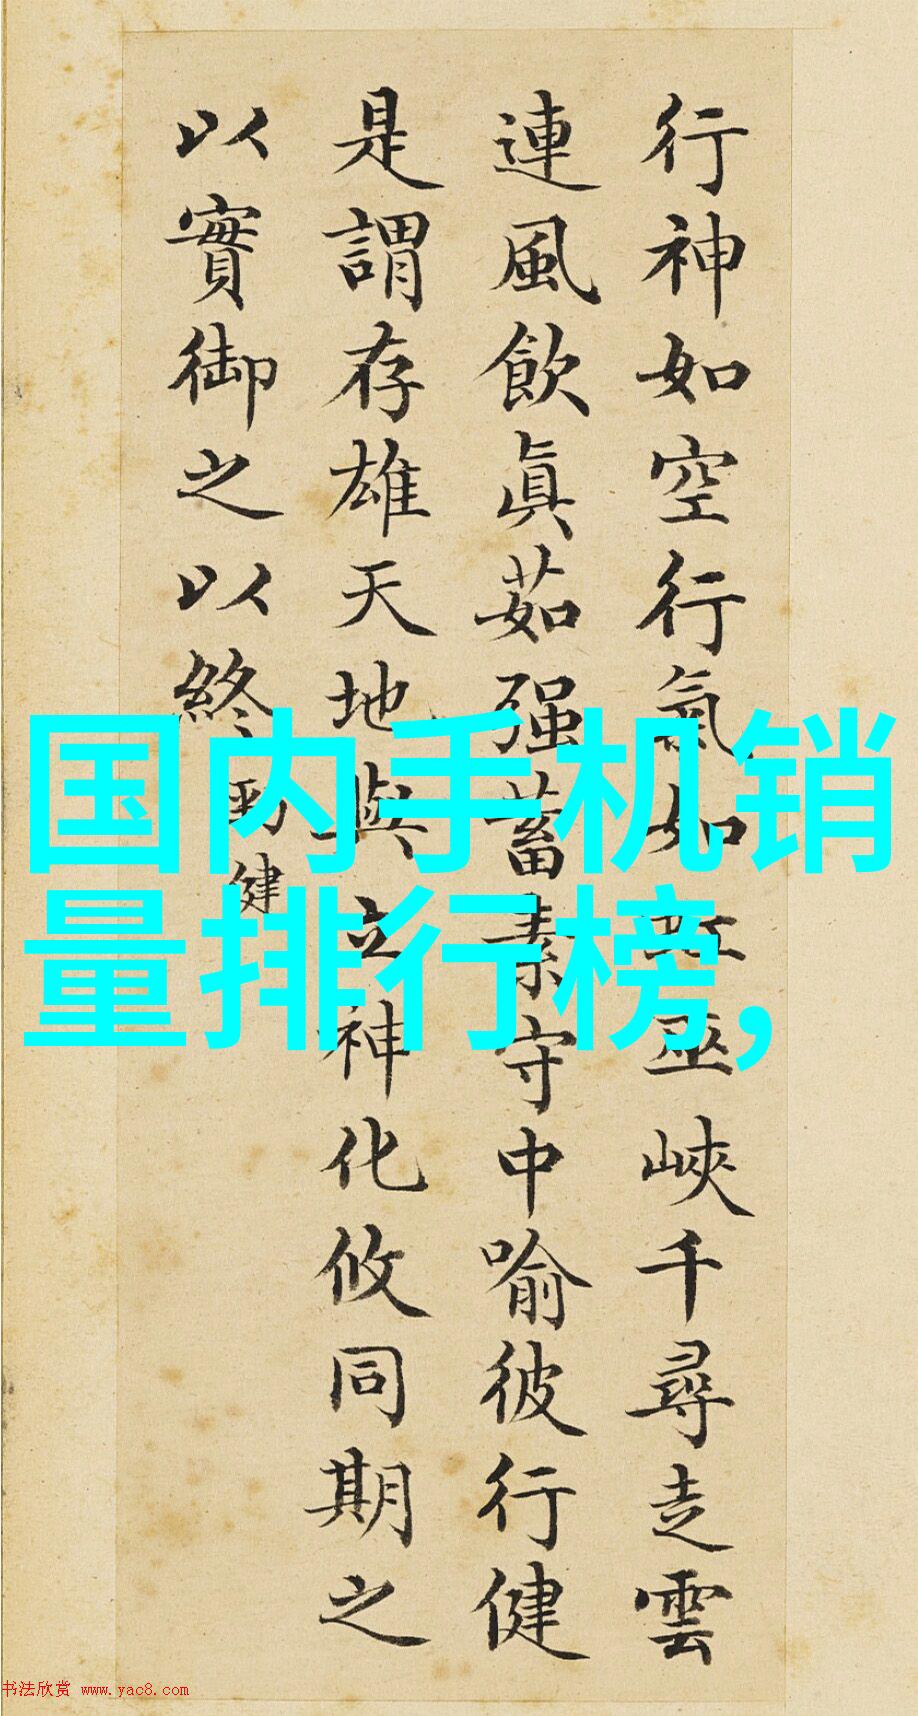 行神如空行氣如虹巫峽千尋走雲
連風飲眞茹强蓄素守中喻彼行健
是謂存雄天地與立神化攸同期之
以實御之以終
勁健
国内手机销
量排行榜,
书法欣赏 www.yac8.com